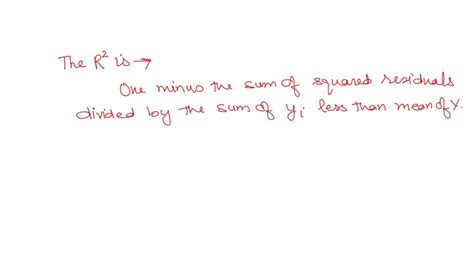 The R² is →
One minus the sum of squared residuals
divided by the sum of yᵢ less than mean of Y.